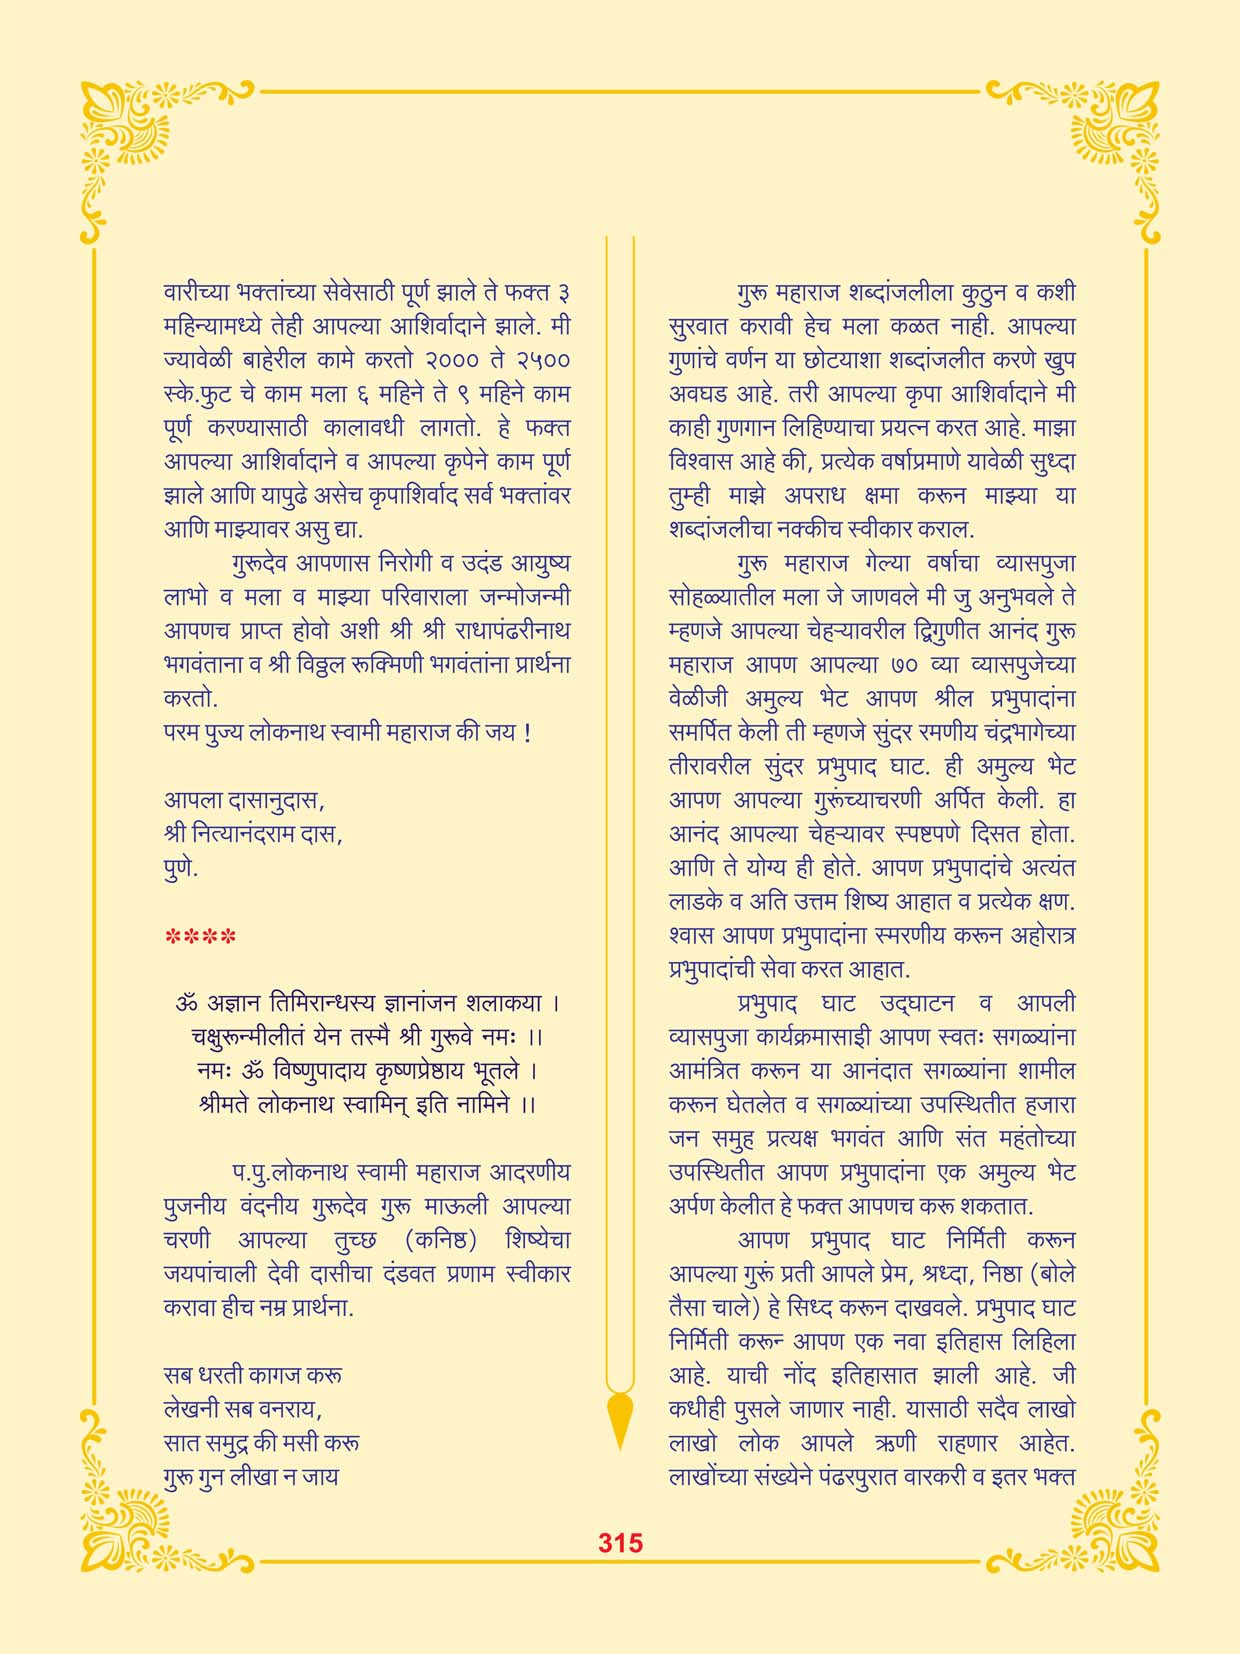 वारीच्या भक्तांच्या सेवेसाठी पूर्ण झाले ते फक्त ३
महिन्यामध्ये तेही आपल्या आशिर्वादाने झाले. मी
ज्यावेळी बाहेरील कामे करतो २००० ते २५००
स्के.फुट चे काम मला ६ महिने ते ९ महिने काम
पूर्ण करण्यासाठी कालावधी लागतो. हे फक्त
आपल्या आशिर्वादाने व आपल्या कृपेने काम पूर्ण
झाले आणि यापुढे असेच कृपाशिर्वाद सर्व भक्तांवर
आणि माझ्यावर असु द्या.
गुरूदेव आपणास निरोगी व उदंड आयुष्य
लाभो व मला व माझ्या परिवाराला जन्मोजन्मी
आपणच प्राप्त होवो अशी श्री श्री राधापंढरीनाथ
भगवंताना व श्री विठ्ठल रूक्मिणी भगवंतांना प्रार्थना
करतो.
परम पुज्य लोकनाथ स्वामी महाराज की जय !
आपला दासानुदास,
श्री नित्यानंदराम दास,
पुणे.
****
ॐ अज्ञान तिमिरान्धस्य ज्ञानांजन शलाकया ।
चक्षुरून्मीलीतं येन तस्मै श्री गुरूवे नमः ।।
नमः ॐ विष्णुपादाय कृष्णप्रेष्ठाय भूतले ।
श्रीमते लोकनाथ स्वामिन् इति नामिने ।।
प.पु.लोकनाथ स्वामी महाराज आदरणीय
पुजनीय वंदनीय गुरूदेव गुरू माऊली आपल्या
चरणी आपल्या तुच्छ (कनिष्ठ) शिष्येचा
जयपांचाली देवी दासीचा दंडवत प्रणाम स्वीकार
करावा हीच नम्र प्रार्थना.
सब धरती कागज करू
लेखनी सब वनराय,
सात समुद्र की मसी करू
गुरू गुन लीखा न जाय
गुरू महाराज शब्दांजलीला कुठुन व कशी
सुरवात करावी हेच मला कळत नाही. आपल्या
गुणांचे वर्णन या छोटयाशा शब्दांजलीत करणे खुप
अवघड आहे. तरी आपल्या कृपा आशिर्वादाने मी
काही गुणगान लिहिण्याचा प्रयत्न करत आहे. माझा
विश्वास आहे की, प्रत्येक वर्षाप्रमाणे यावेळी सुध्दा
तुम्ही माझे अपराध क्षमा करून माझ्या या
शब्दांजलीचा नक्कीच स्वीकार कराल.
गुरू महाराज गेल्या वर्षाचा व्यासपुजा
सोहळ्यातील मला जे जाणवले मी जु अनुभवले ते
म्हणजे आपल्या चेहऱ्यावरील द्विगुणीत आनंद गुरू
महाराज आपण आपल्या ७० व्या व्यासपुजेच्या
वेळीजी अमुल्य भेट आपण श्रील प्रभुपादांना
समर्पित केली ती म्हणजे सुंदर रमणीय चंद्रभागेच्या
तीरावरील सुंदर प्रभुपाद घाट. ही अमुल्य भेट
आपण आपल्या गुरूंच्याचरणी अर्पित केली. हा
आनंद आपल्या चेहऱ्यावर स्पष्टपणे दिसत होता.
आणि ते योग्य ही होते. आपण प्रभुपादांचे अत्यंत
लाडके व अति उत्तम शिष्य आहात व प्रत्येक क्षण.
श्वास आपण प्रभुपादांना स्मरणीय करून अहोरात्र
प्रभुपादांची सेवा करत आहात.
प्रभुपाद घाट उद्‌घाटन व आपली
व्यासपुजा कार्यक्रमासाइी आपण स्वतः सगळ्यांना
आमंत्रित करून या आनंदात सगळ्यांना शामील
करून घेतलेत व सगळ्यांच्या उपस्थितीत हजारा
जन समुह प्रत्यक्ष भगवंत आणि संत महंतोच्या
उपस्थितीत आपण प्रभुपादांना एक अमुल्य भेट
अर्पण केलीत हे फक्त आपणच करू शकतात.
आपण प्रभुपाद घाट निर्मिती करून
आपल्या गुरूं प्रती आपले प्रेम, श्रध्दा, निष्ठा (बोले
तैसा चाले) हे सिध्द करून दाखवले. प्रभुपाद घाट
निर्मिती करून्‍ आपण एक नवा इतिहास लिहिला
आहे. याची नोंद इतिहासात झाली आहे. जी
कधीही पुसले जाणार नाही. यासाठी सदैव लाखो
लाखो लोक आपले ऋणी राहणार आहेत.
लाखोंच्या संख्येने पंढरपुरात वारकरी व इतर भक्त
315